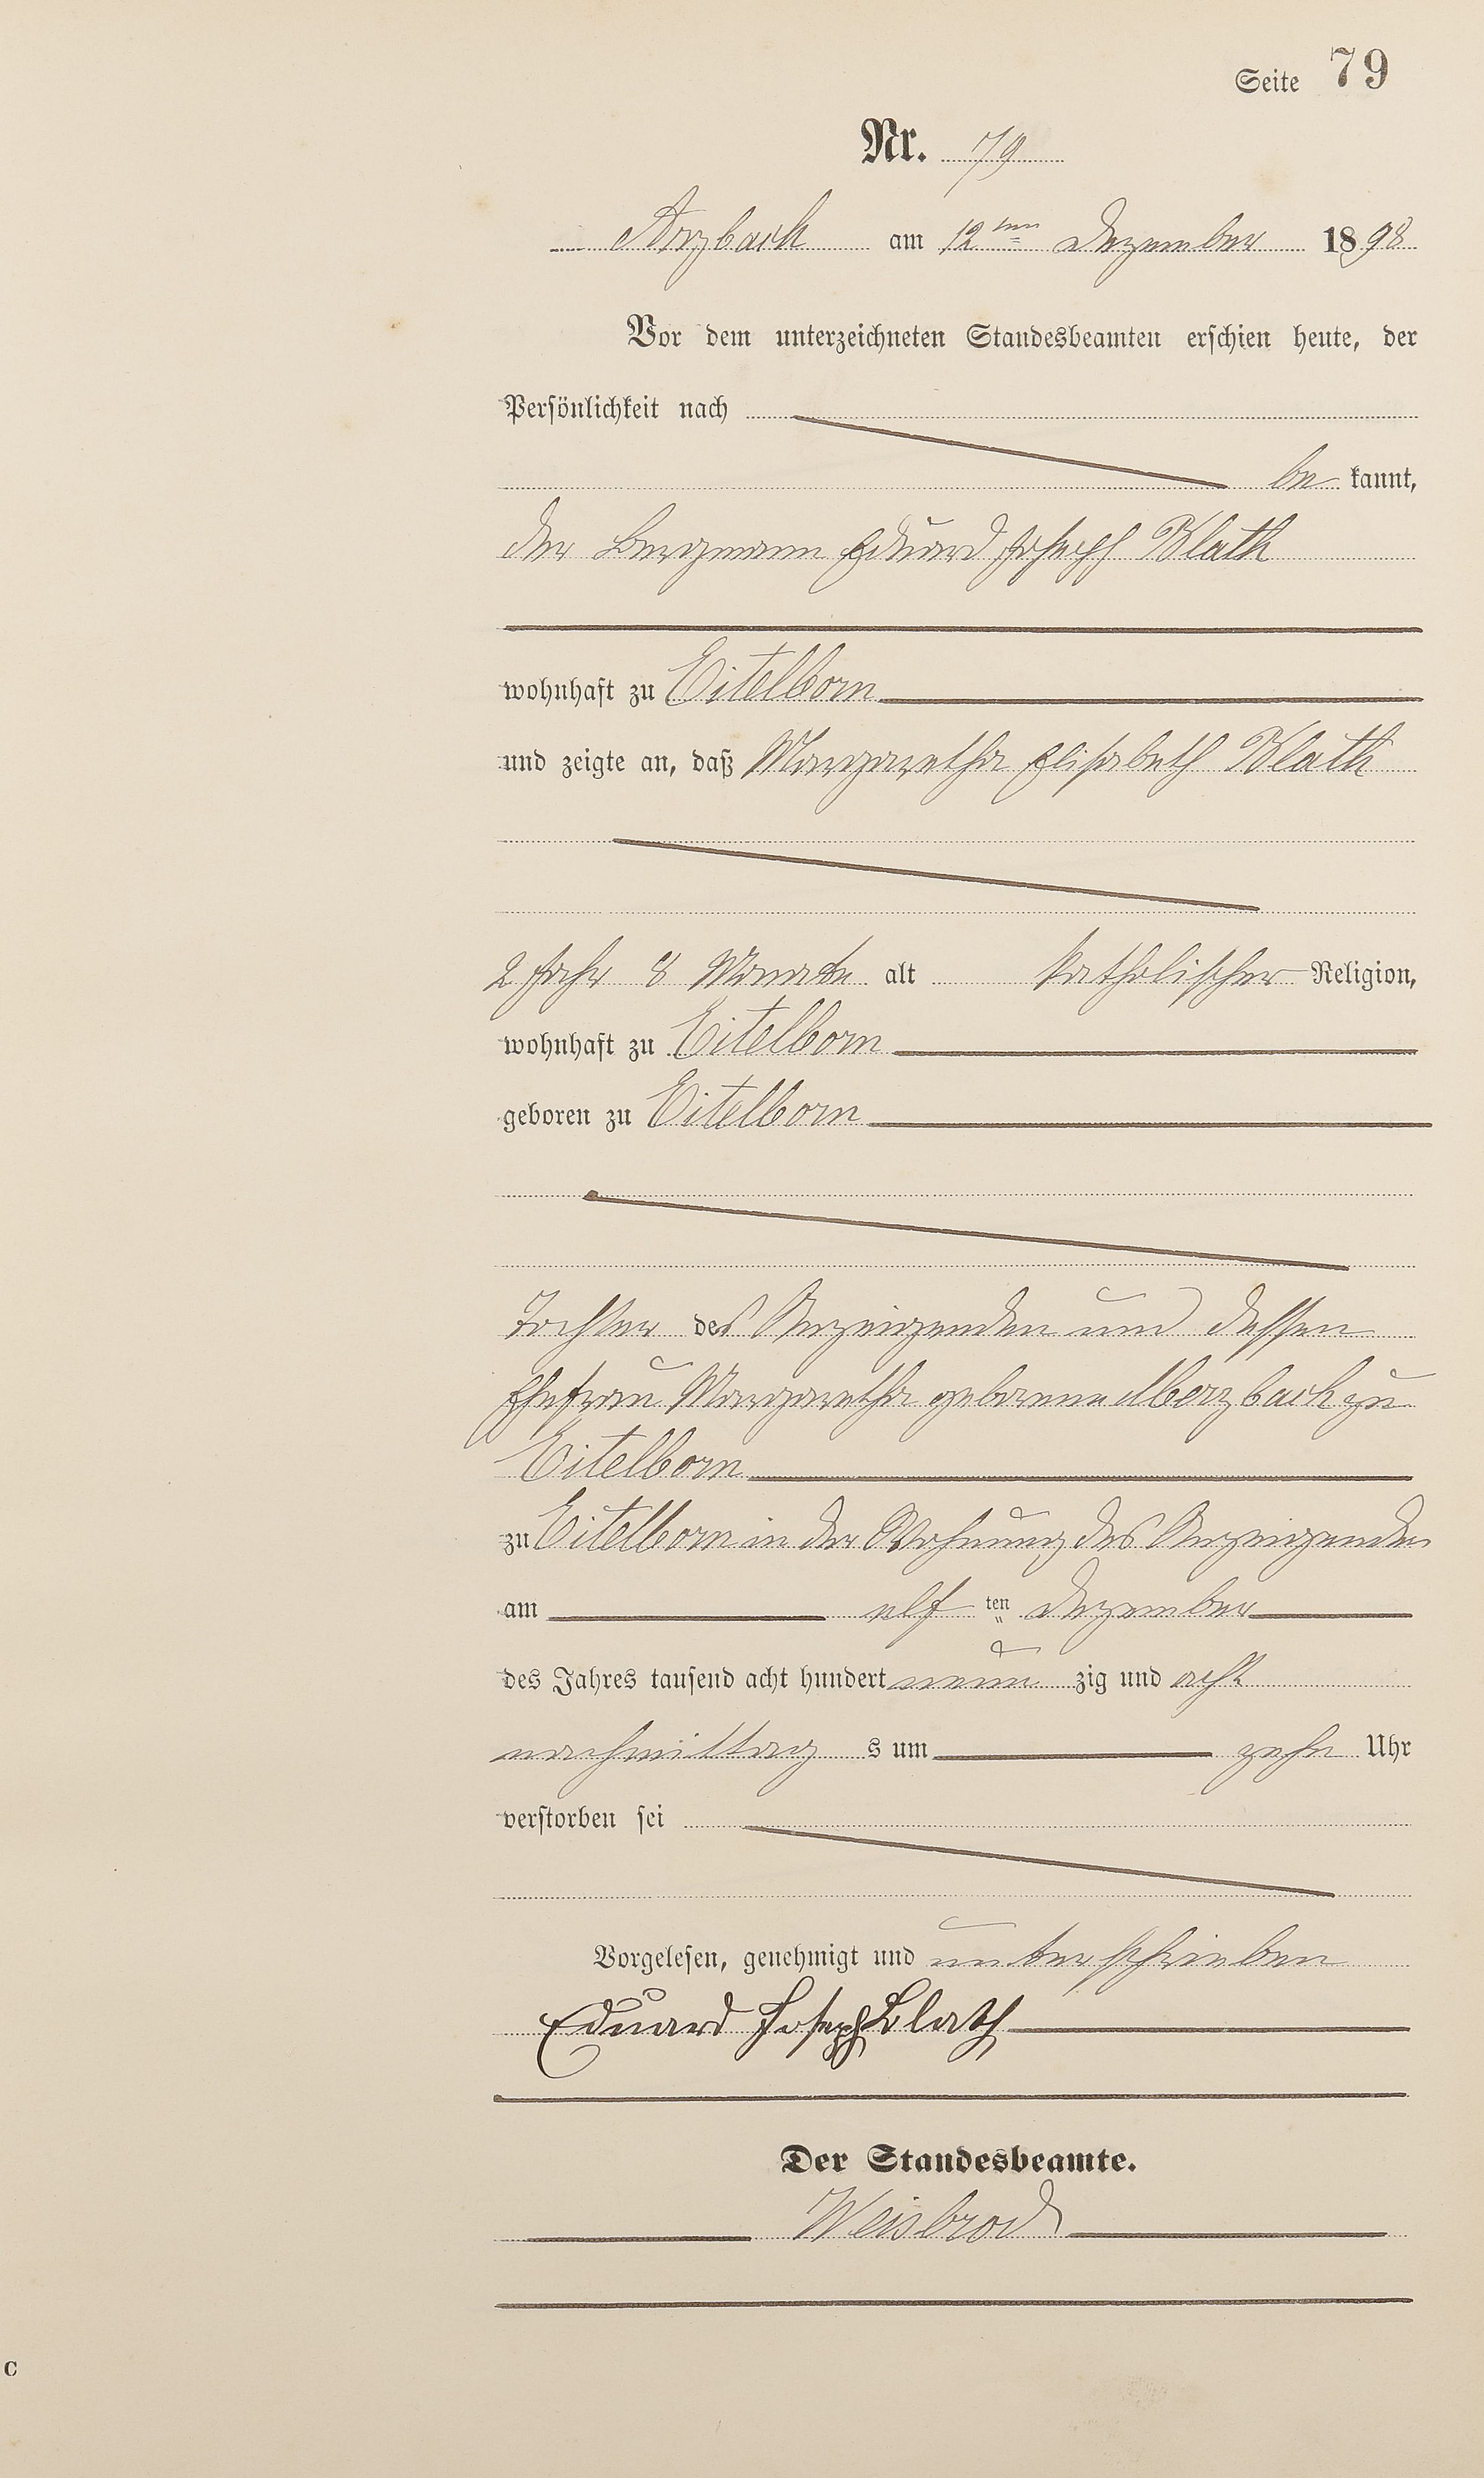 Seite 79
Nr. 79
Arzbach am 12ten Dezember 1898
Vor dem unterzeichneten Standesbeamten erschien heute, der
Persönlichkeit nach
bekannt,
der Bergmann Eduard Joseph Blath
wohnhaft zu Eitelborn
und zeigte an, daß Margaretha Elisabeth Blath
2 Jahr 8 Monate alt katholischer Religion,
wohnhaft zu Eitelborn
geboren zu Eitelborn
Tochter des Anzeigenden und dessen
Ehefrau Margaretha geborene zu
Eitelborn
zu Eitelborn in der Wohnung des Anzeigenden
am elf ten Dezember
des Jahres tausend acht hundert neun zig und acht
nachmittag s um zehn Uhr
verstorben sei
Vorgelesen, genehmigt und unterschrieben
Eduard Joseph Blath
Der Standesbeamte.
Weisbrod
C